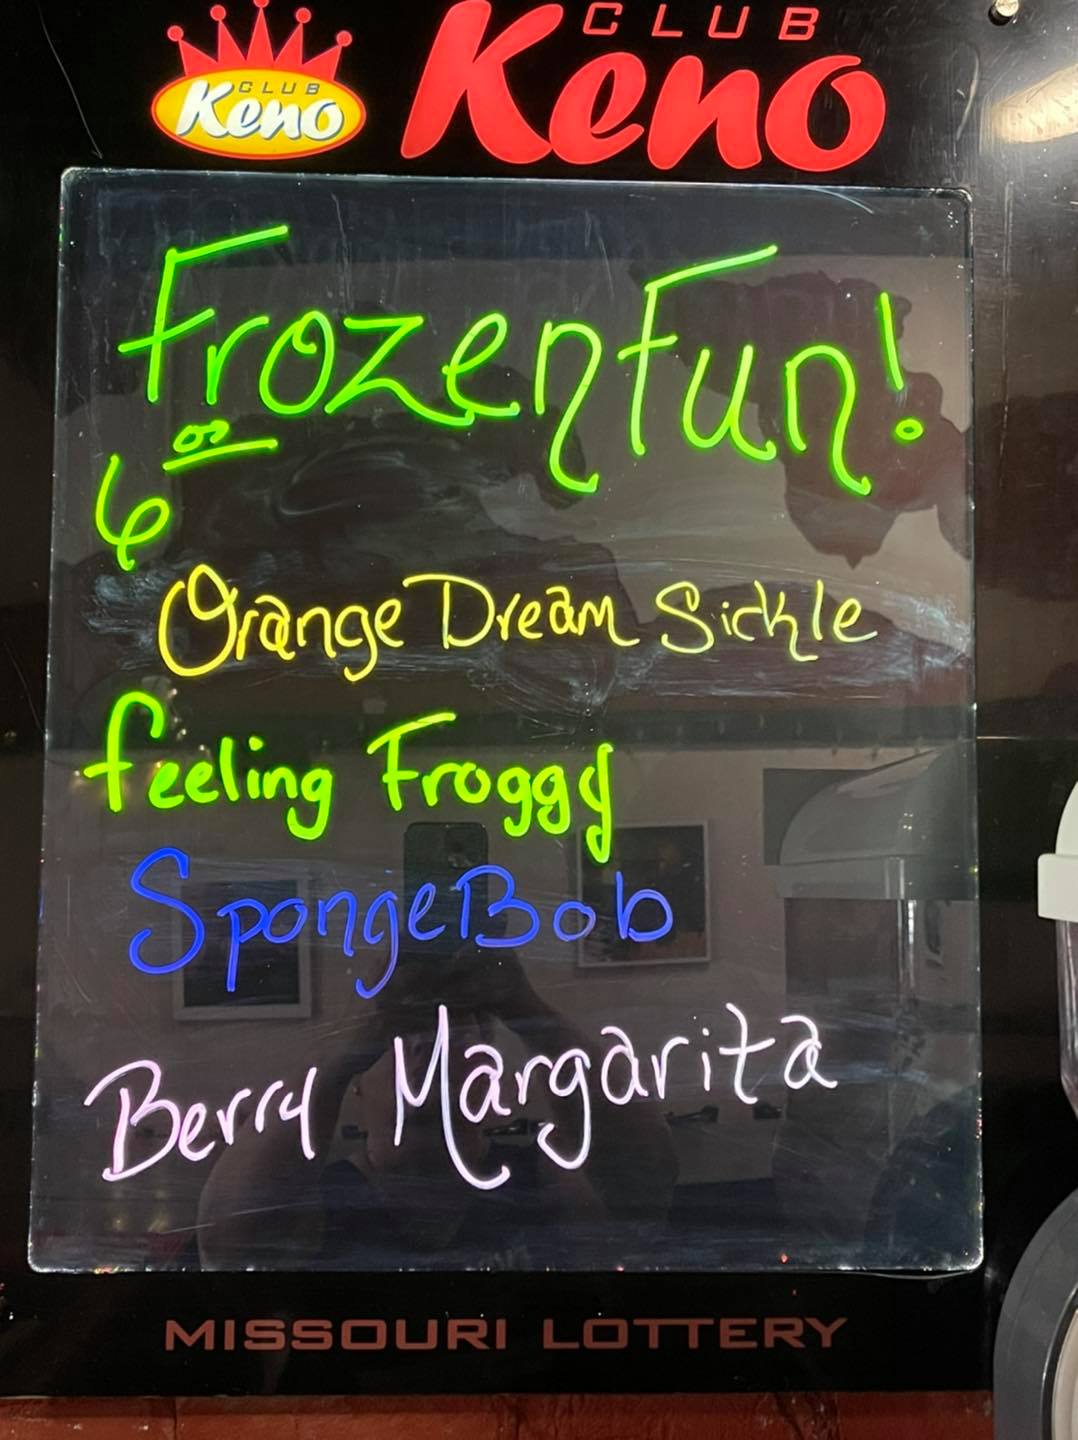 CLUB
Keno
CLUB
Keno
Frozen Fun!
6 00
Orange Dream Sickle
feeling Froggy
SpongeBob
Berry Margarita
MISSOURI LOTTERY